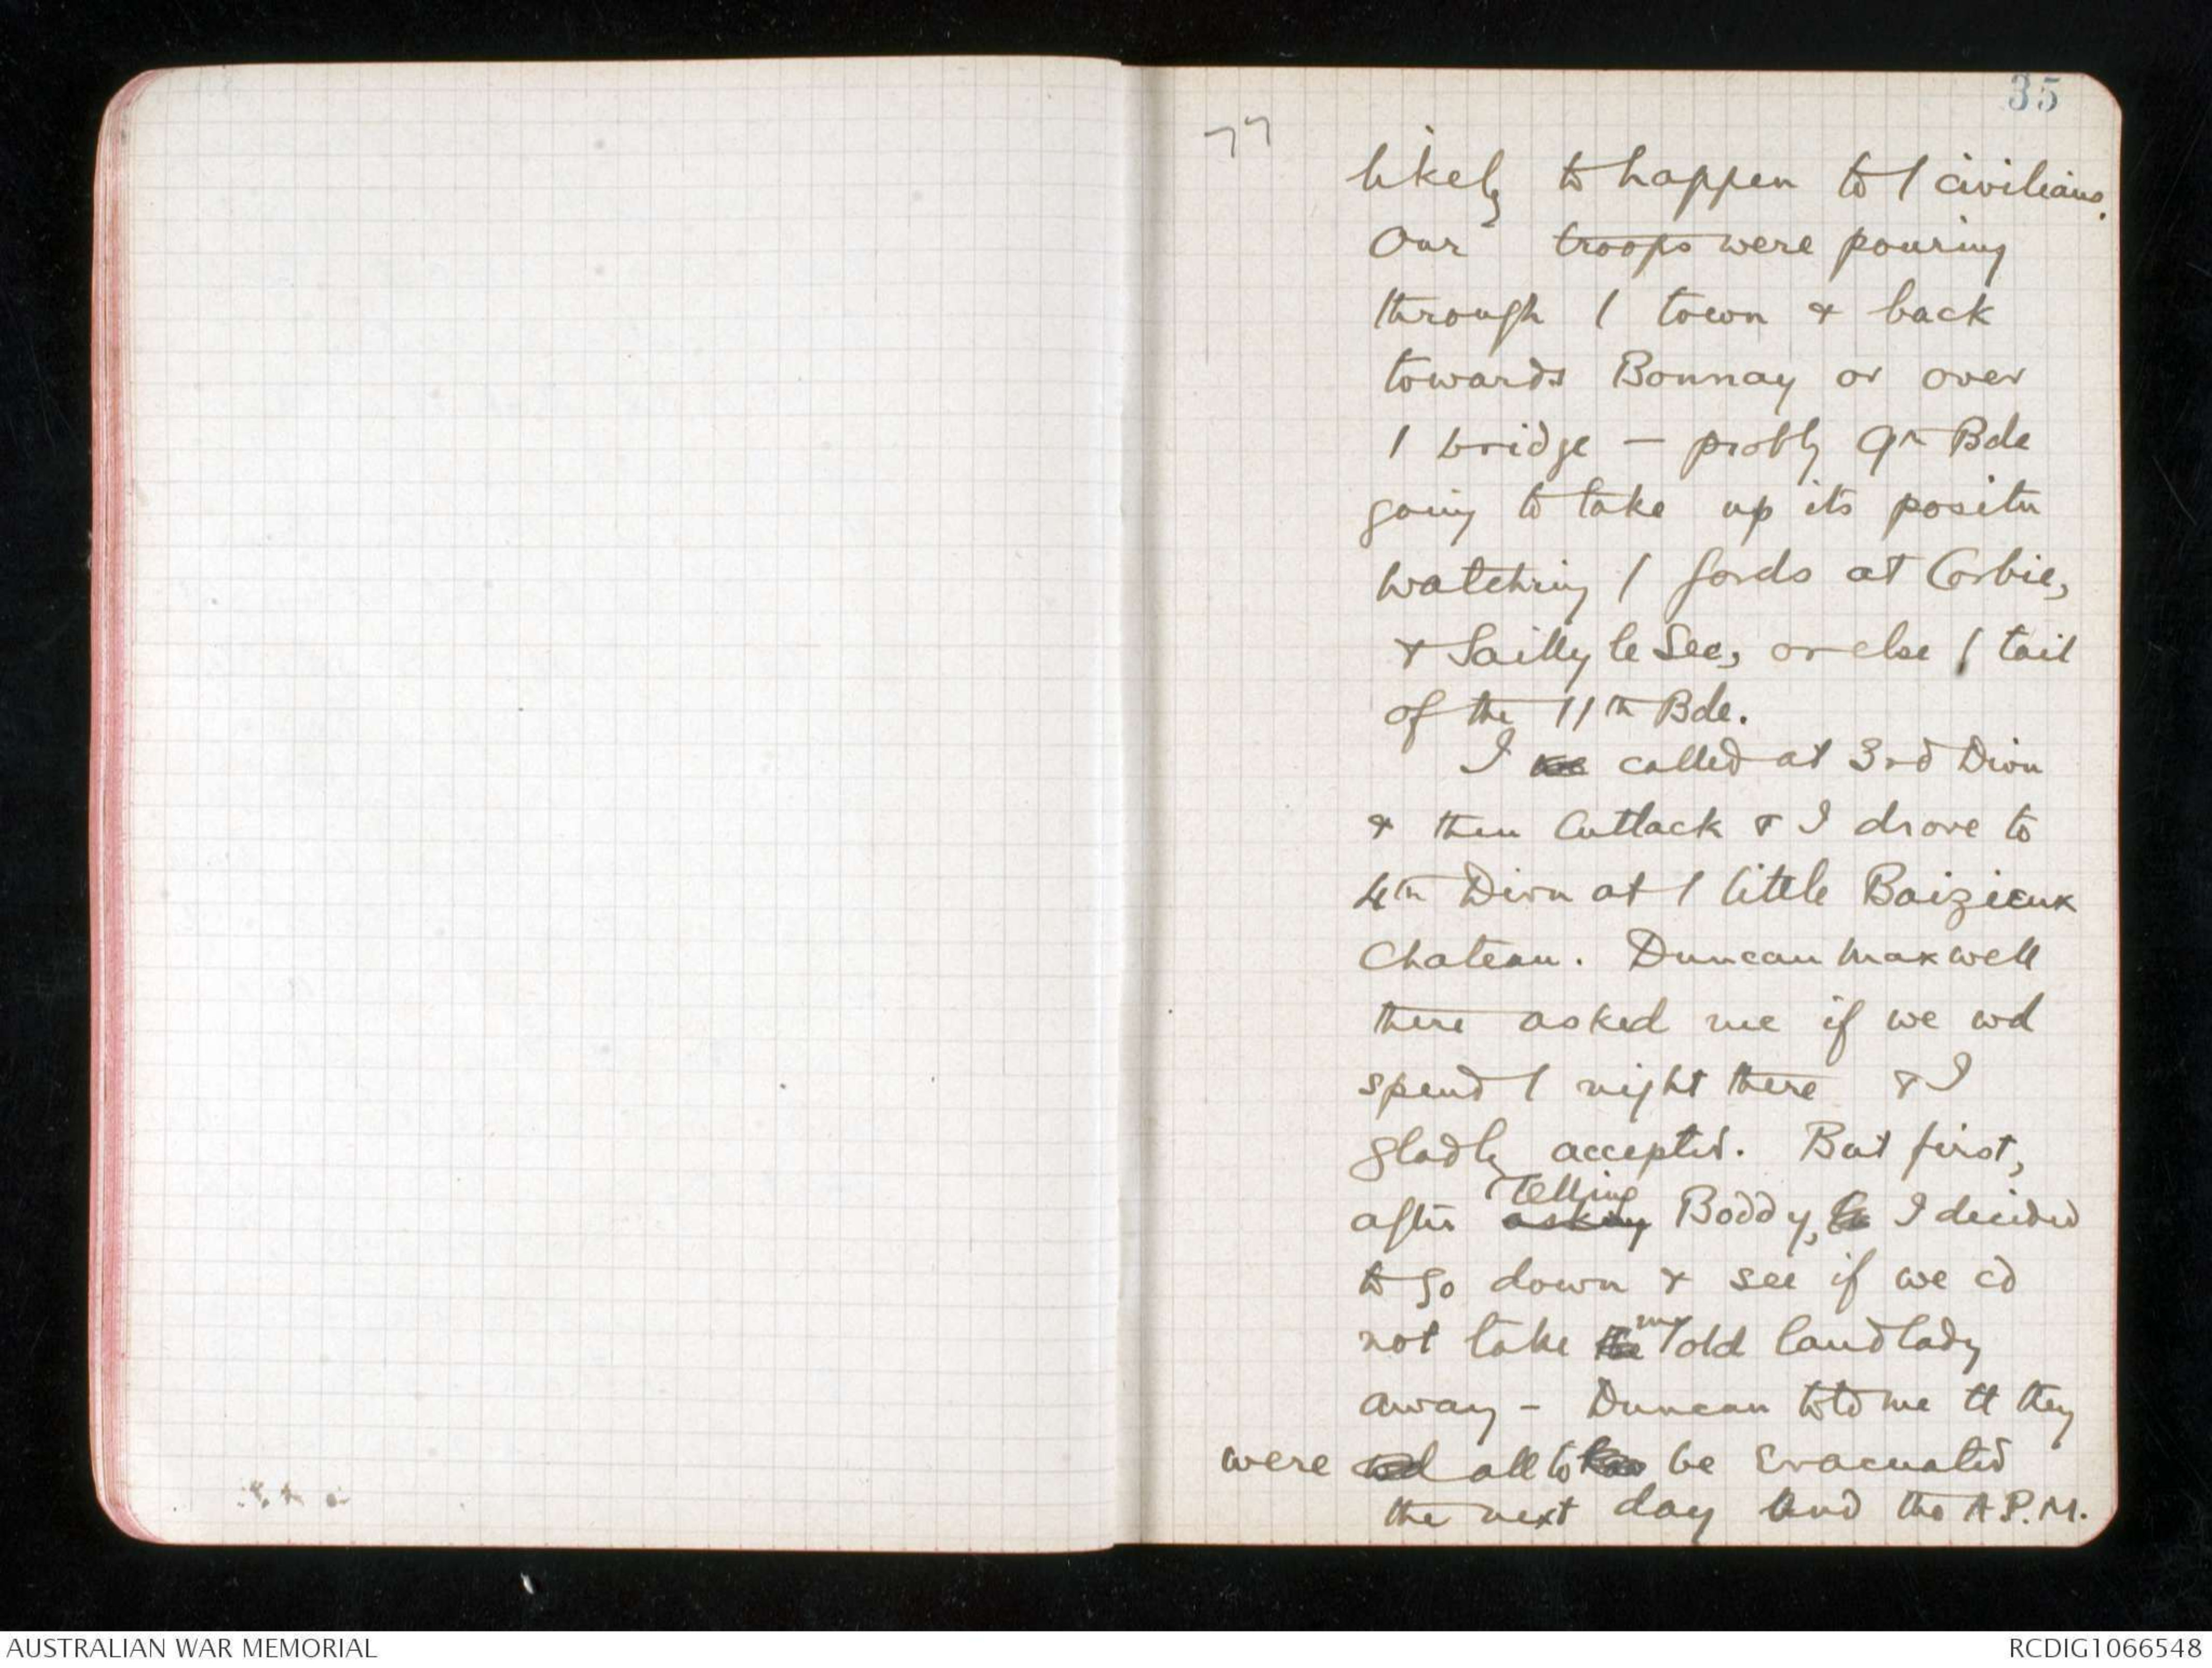 35
77
likely to happen to / civilians.
Our troops were pouring
through / town & back
towards Bonnay or over
/ bridge - probly 9th Bde
going to take up its positn
watching / fords at Corbie,
& Sailly le Sec, or else / tail
of the 11th Bde.
I called at 3rd Divn
& then Cutlack & I drove to
4th Divn at / little Baizieux
Chateau. Duncan Maxwell
there asked me if we wd
spend / night there & I
gladly accepted. But first,
after asking telling Boddy, I decided
to go down & see if we cd
not take the my old landlady
away - Duncan told me tt they
were wd all to be evacuated
the next day and the A.P.M.
AUSTRALIAN WAR MEMORIAL
RCDIG1066548